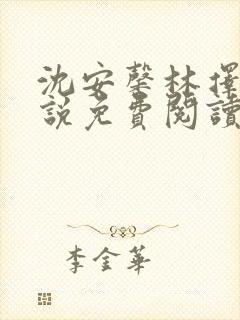 沈安馨林擇
說免費閱讀
李金華